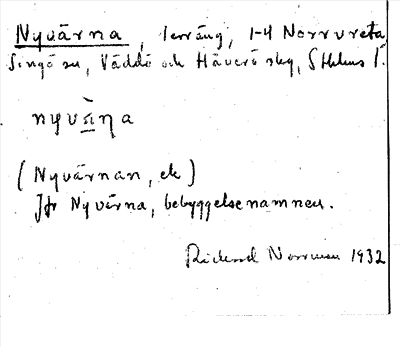 Nyvärna, terräng, 1-4 Norrvreta
Singö sn, Väddö och Häverö skg, Sthlms l.
nyvàṇa
(Nyvärnan, ek)
Jfr Nyvärna, bebyggelsenamnen.
Rickard Norrman 1932